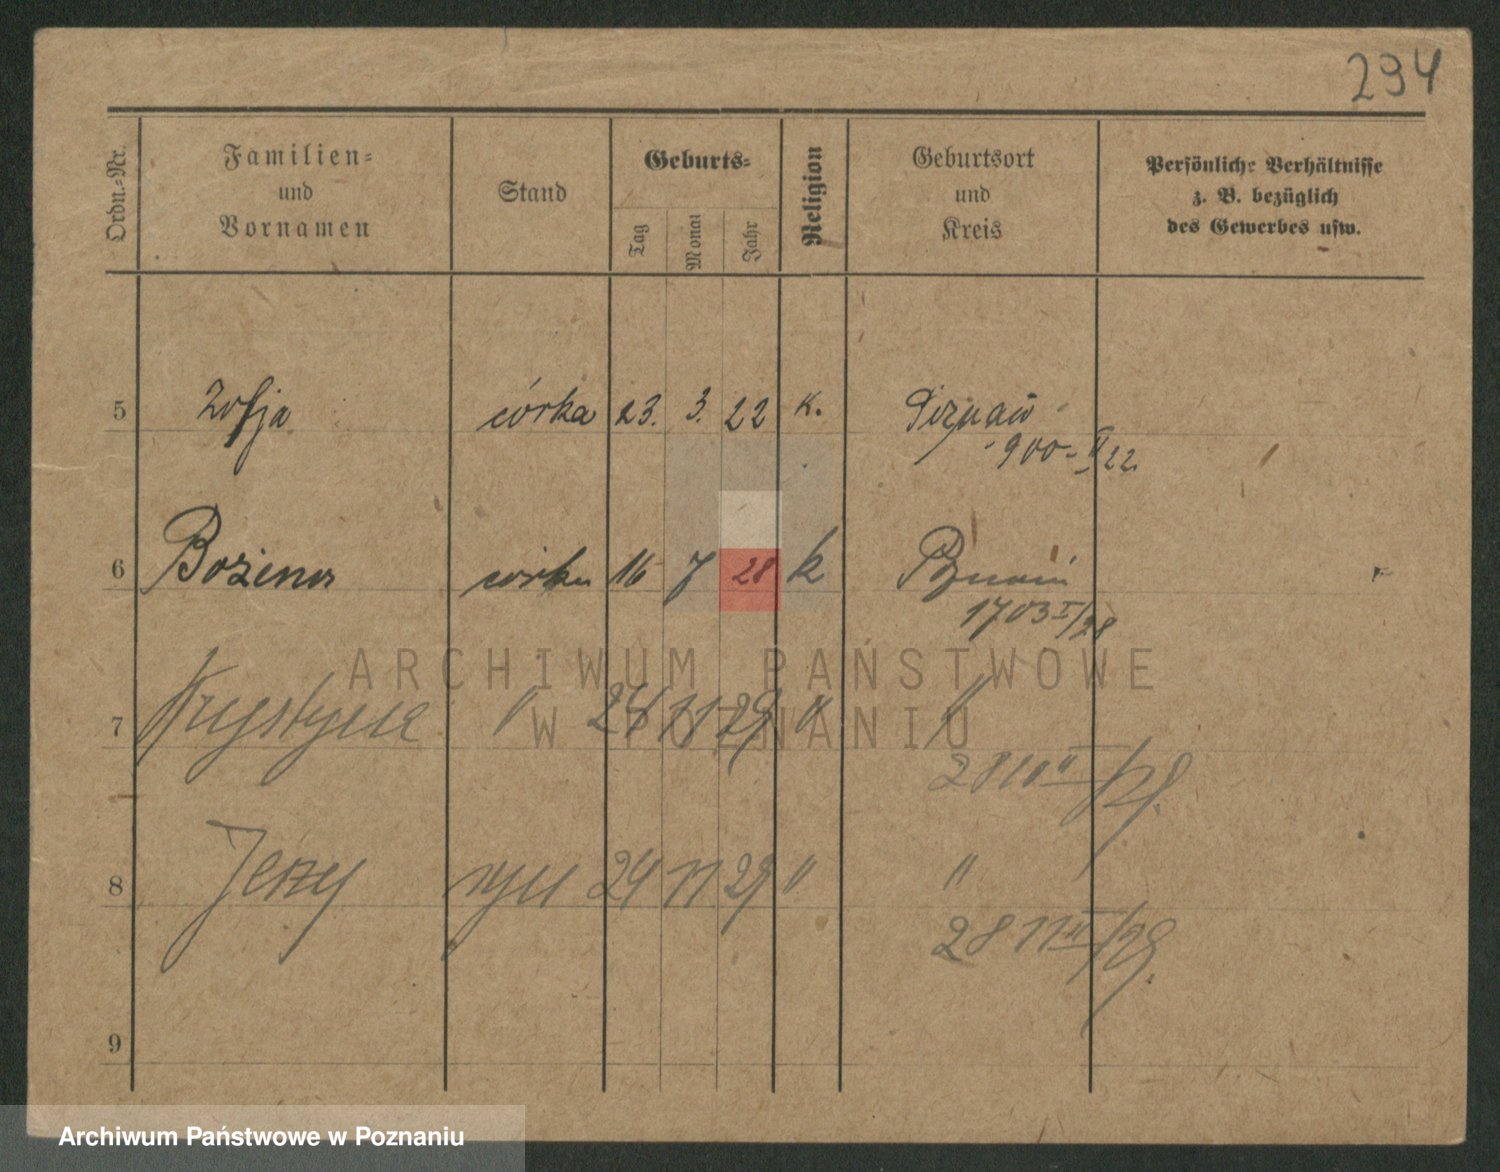 294
Ordn.=Nr.
Familien=
und
Vornamen
Stand
Geburts=
Tag
Monat
Jahr
Religion
Geburtsort
und
Kreis
Persönliche Verhältnisse
z. B. bezüglich
des Gewerbes usw.
5 Zofja córka 23. 3. 22 K. Poznań
900 - II 22
6 Bożena córka 16 7 28 k Poznań
1703 I/28
ARCHIWUM PAŃSTWOWE
W POZNANIU
7 Krystyna " 24 11 29 " "
2810 II/29.
8 Jerzy syn 24 11 29 " "
2811 II/29.
9
Archiwum Państwowe w Poznaniu